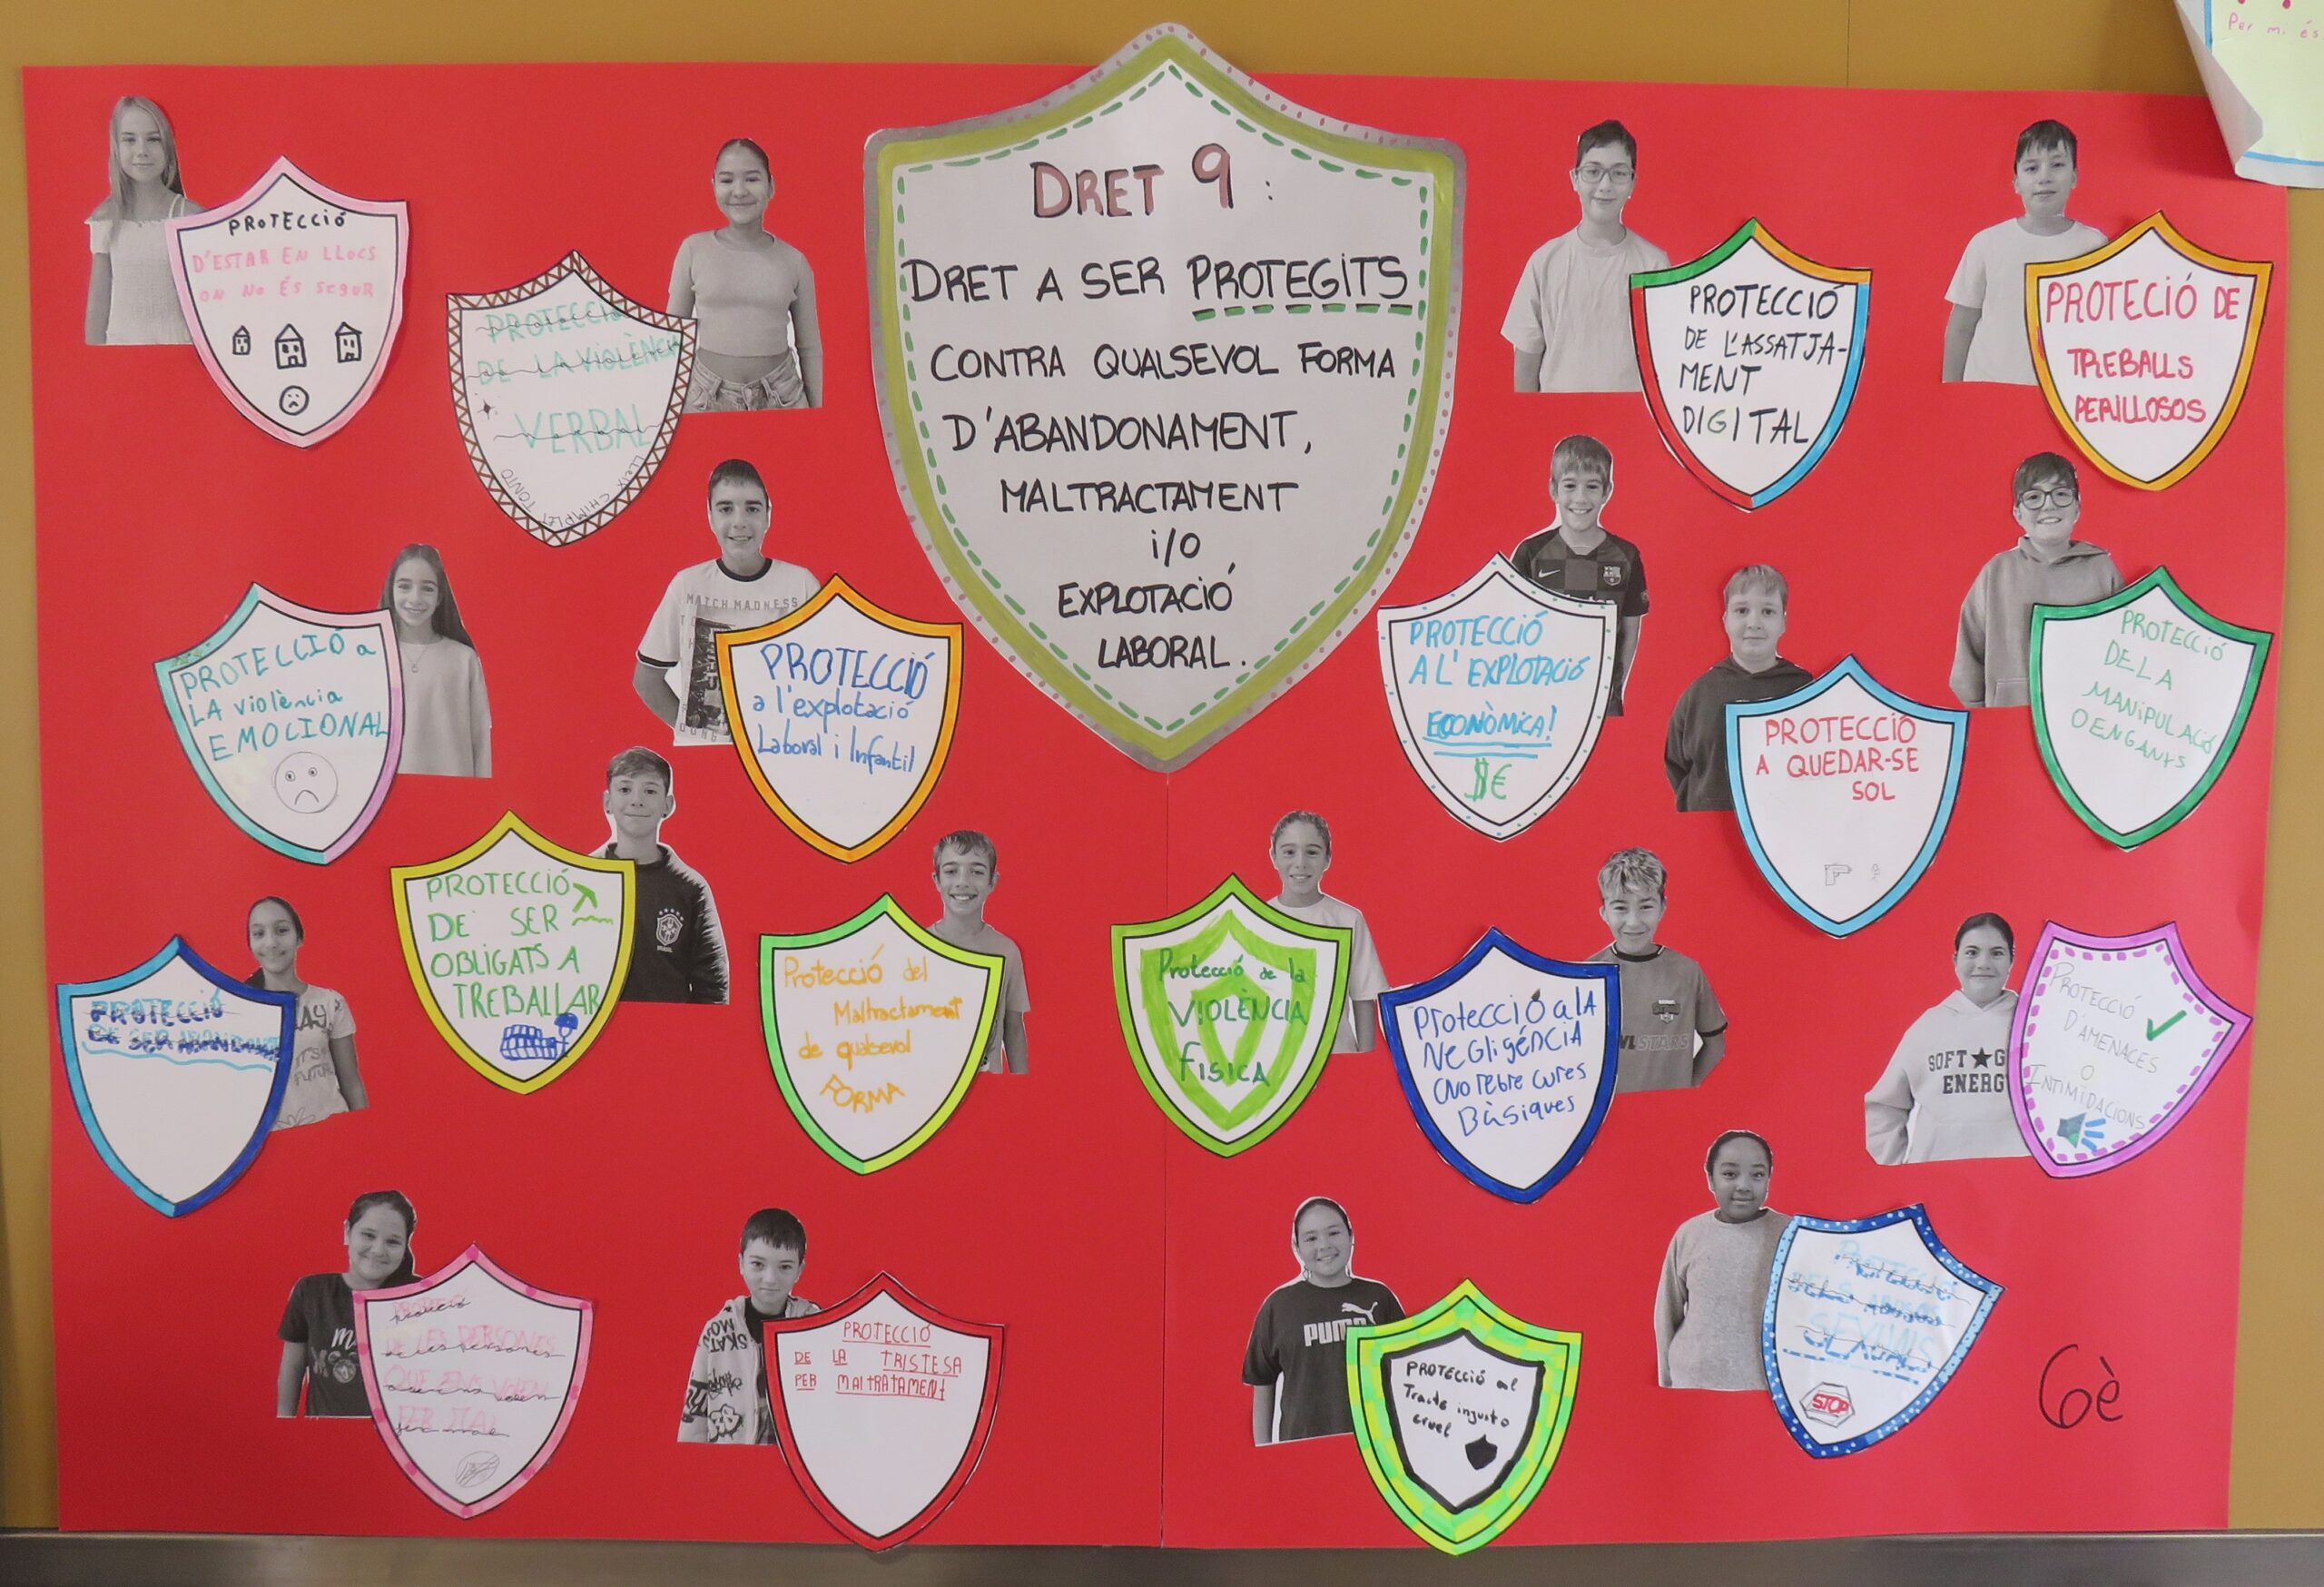 Per mi és
DRET 9:
DRET A SER PROTEGITS
CONTRA QUALSEVOL FORMA
D'ABANDONAMENT,
MALTRACTAMENT
i/O
EXPLOTACIÓ
LABORAL.
PROTECCIÓ
D'ESTAR EN LLOCS
ON NO ÉS SEGUR
PROTECCIÓ
DE LA VIOLÈNCIA
VERBAL
LLEIX CHIMPLET TONTO
PROTECCIÓ
DE L'ASSATJA-
MENT
DIGITAL
PROTECIÓ DE
TREBALLS
PERILLOSOS
PROTECCIÓ a
LA violència
EMOCIONAL
MATCH MADNESS
PROTECCIÓ
a l'explotació
Laboral i Infantil
PROTECCIÓ
A L'EXPLOTACIÓ
ECONÒMICA!
$€
PROTECCIÓ
A QUEDAR-SE
SOL
PROTECCIÓ
DE LA
MANIPULACIÓ
O ENGANYS
PROTECCIÓ
DE SER
OBLIGATS A
TREBALLAR
BRASIL
PROTECCIÓ
DE SER ABANDONAT
IT'S
FUTURE
Protecció del
Maltractament
de qualsevol
FORMA
Protecció de la
VIOLÈNCIA
FISICA
Protecció a lA
NEGligéNCIA
O NO rebre cures
Bàsiques
STARS
SOFT ★ G
ENERG
PROTECCIÓ
D'AMENACES
O
INTIMIDACIONS
PROTECCIÓ
DE LES PERSONES
QUE ENS VOLEN
FER MAL
SKATE
PROTECCIÓ
DE LA TRISTESA
PER MALTRATAMENT
PUMA
PROTECCIÓ al
Tracte injusto
cruel
PROTECCIÓ
DELS ABUSOS
SEXUALS
STOP
6è